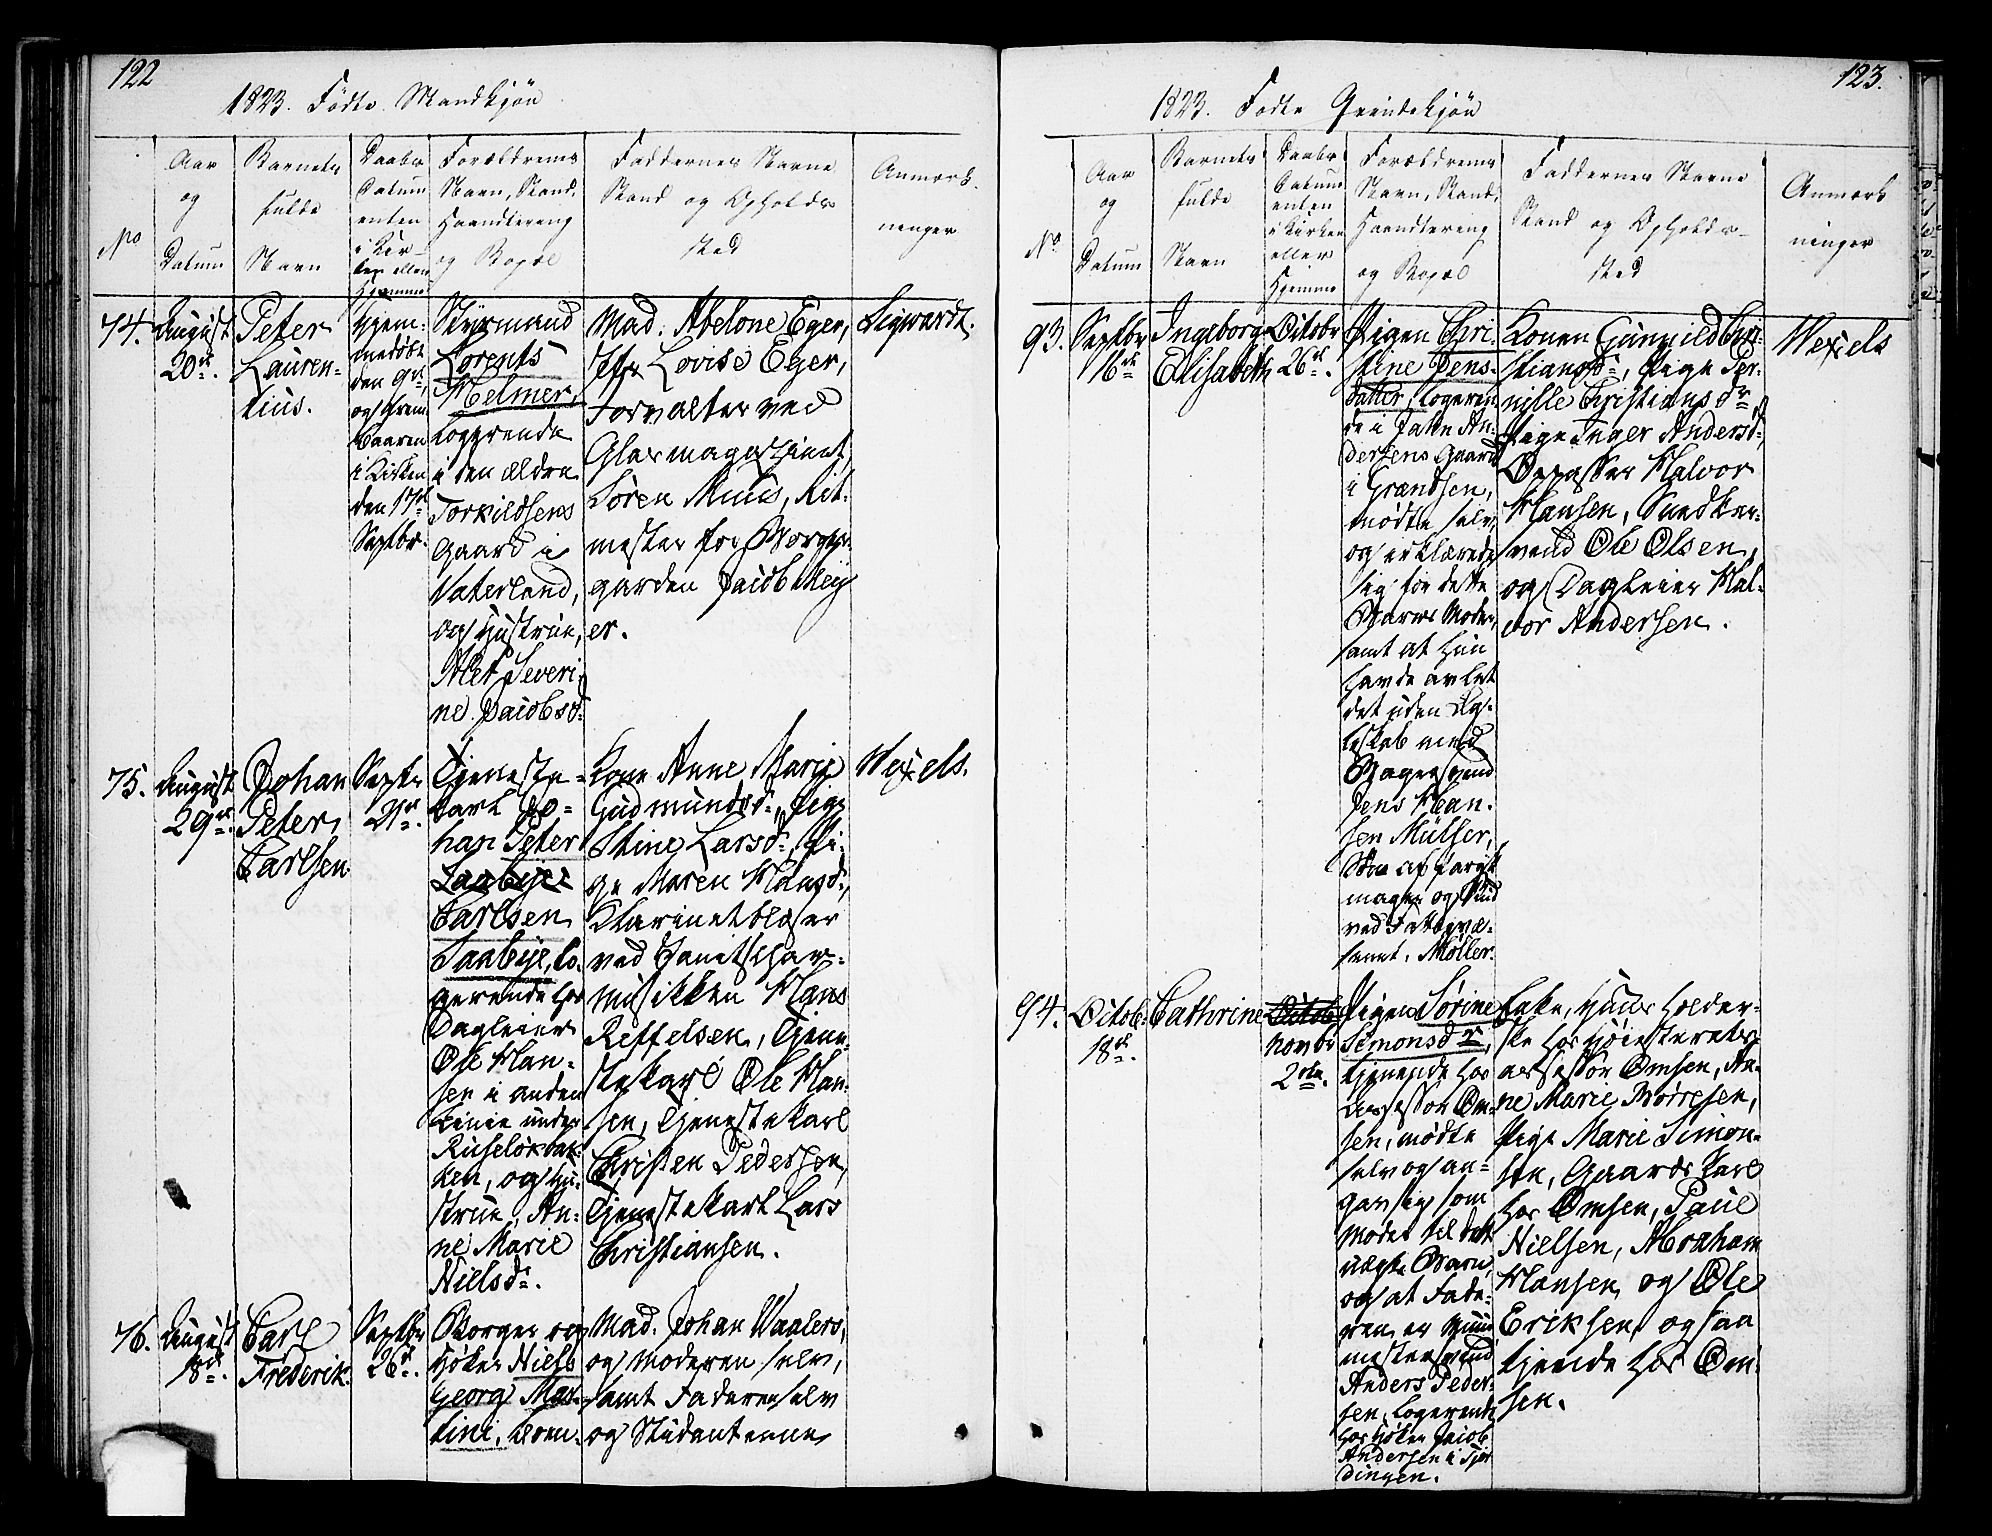 122
1823. Fødte Mandkjøn
No
Aar
og
Datum
Barnets
fulde
Navn
Daabs
Datum
enten
i Kir-
ken eller
Hjemme
Forældrenes
Navn, Stand,
Haandtering
og Bopæl
Faddernes Navne
Stand og Opholds
sted
Anmærk-
ninger
74.
August
20de.
Peter
Lauren-
tius.
Hjem-
medøbt
den 9de,
og frem-
baaren
i Kirken
den 17de
Septbr.
Styrmand
Lorents
Helmer,
logerende
i den ældre
Torkildsens
Gaard i
Vaterland,
og Hustrue,
Alet Severi-
ne Jacobsd.
Mad. Abelone Eger,
Jfr Lovise Eger,
Forvalter ved
Glasmagazinet,
Søren Muus, Rit-
mester for Borger-
garden Jacob Mey-
er.
Sigwardt.
75.
August
29de.
Johan
Peter
Carlsen
Septbr
21de.
Tjeneste-
karl Jo-
han Peter
Saabye
Carlsen
Saabye, lo-
gerende hos
Dagleier
Ole Han-
sen i anden
Linie under
Ruseløkbak-
ken, og Hu-
strue, An-
ne Marie
Nielsd.
Kone Anne Marie
Gudmundsd., Pige
Stine Larsd., Pi-
ge Maren Hansd.,
Klarinetblæser
ved Janitschar-
musikken Hans
Reffelsen, Tjene-
stekarl Ole Han-
sen, Tjenestekarl
Christen Pedersen,
Tjenestekarl Lars
Christiansen.
Wexels.
76.
August
18de.
Carl
Frederik.
Septbr
26de.
Borger og
Høker Niels
Georg Mar-
tini,
Mad. Johan Waalers,
og Moderen selv,
samt Faderen selv
og Studenterne
123.
1823. Fødte Qvindekjøn
No
Aar
og
Datum
Barnets
fulde
Navn
Daabs
Datum
enten
i Kirken
eller
Hjemme
Forældrenes
Navn, Stand,
Haandtering
og Bopæl
Faddernes Navne
Stand og Opholds-
sted
Anmærk
ninger
93.
Septbr
16de
Ingeborg
Elisabeth
Octobr
26de.
Pigen Chri-
stine Jens-
datter, logeren-
de i Jahn An-
dersens Gaard
i Grændsen,
mødte selv
og erklærede
sig for dette
Barns Moder,
samt at hun
havde avlet
det uden Æg-
teskab med
Bagersvend
Jens Han-
sen Müller,
Søn af Paryk-
mager og Bud
ved Fattigvæ-
senet, Møller.
Konen Gunnild Chri-
stiansd., Pige Per-
nille Christiansdr,
Pige Inger Andersd.,
Oppasser Halvor
Hansen, Snedker-
svend Ole Olsen,
og Dagleier Hal-
vor Andersen.
Wexels
94.
Octob.
18de.
Cathrine
Octob.
Novbr
2den.
Pigen Sørine
Simonsdr,
tjenende hos
Assessor Om-
sen, mødte
selv og an-
gav sig som
Moder til dette
uægte Barn,
og at Fade-
ren er
mestersvend
Anders Peder-
sen, logerende
hos Høker Jacob
Andersen i Fjer-
dingen.
Enke, Huus Holder-
ske hos Høiesterets-
assessor Omsen, An-
ne Marie Børresen,
Pige Marie Simon-
sen, Gaardskarl
hos Omsen, Paul
Nielsen, Abraham
Hansen og Ole
Eriksen, ogsaa
tjende hos Om-
sen.